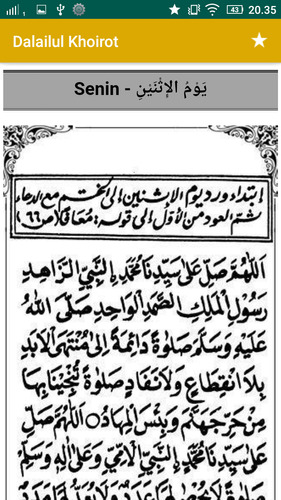 20.35
43
Dalailul Khoirot
Senin - يَوْمُ الإِثْنَيْنِ
ابتداء ورد يوم الاثنين إلى الختم مع الدعاء
ثم العود من الأول إلى قوله: معافاة ص (٦٦)
اَللّٰهُمَّ صَلِّ عَلٰى سَيِّدِنَا مُحَمَّدٍ اِلنَّبِيِّ الزَّاهِدِ
رَسُوْلِ الْمَلِكِ الصَّمَدِ الْوَاحِدِ صَلَّى اللهُ
عَلَيْهِ وَسَلَّمَ صَلٰوةً دَائِمَةً اِلٰى مُنْتَهَى الْاَبَدِ
بِلَا انْقِطَاعٍ وَلَا نَفَادٍ صَلٰوةً تُنْجِيْنَا بِهَا
مِنْ حَرِّ جَهَنَّمَ وَبِئْسَ الْمِهَادُ ○ اَللّٰهُمَّ صَلِّ
عَلٰى سَيِّدِنَا مُحَمَّدٍ اِلنَّبِيِّ الْاُمِّيِّ وَعَلٰى اٰلِهِ وَسَلِّمْ